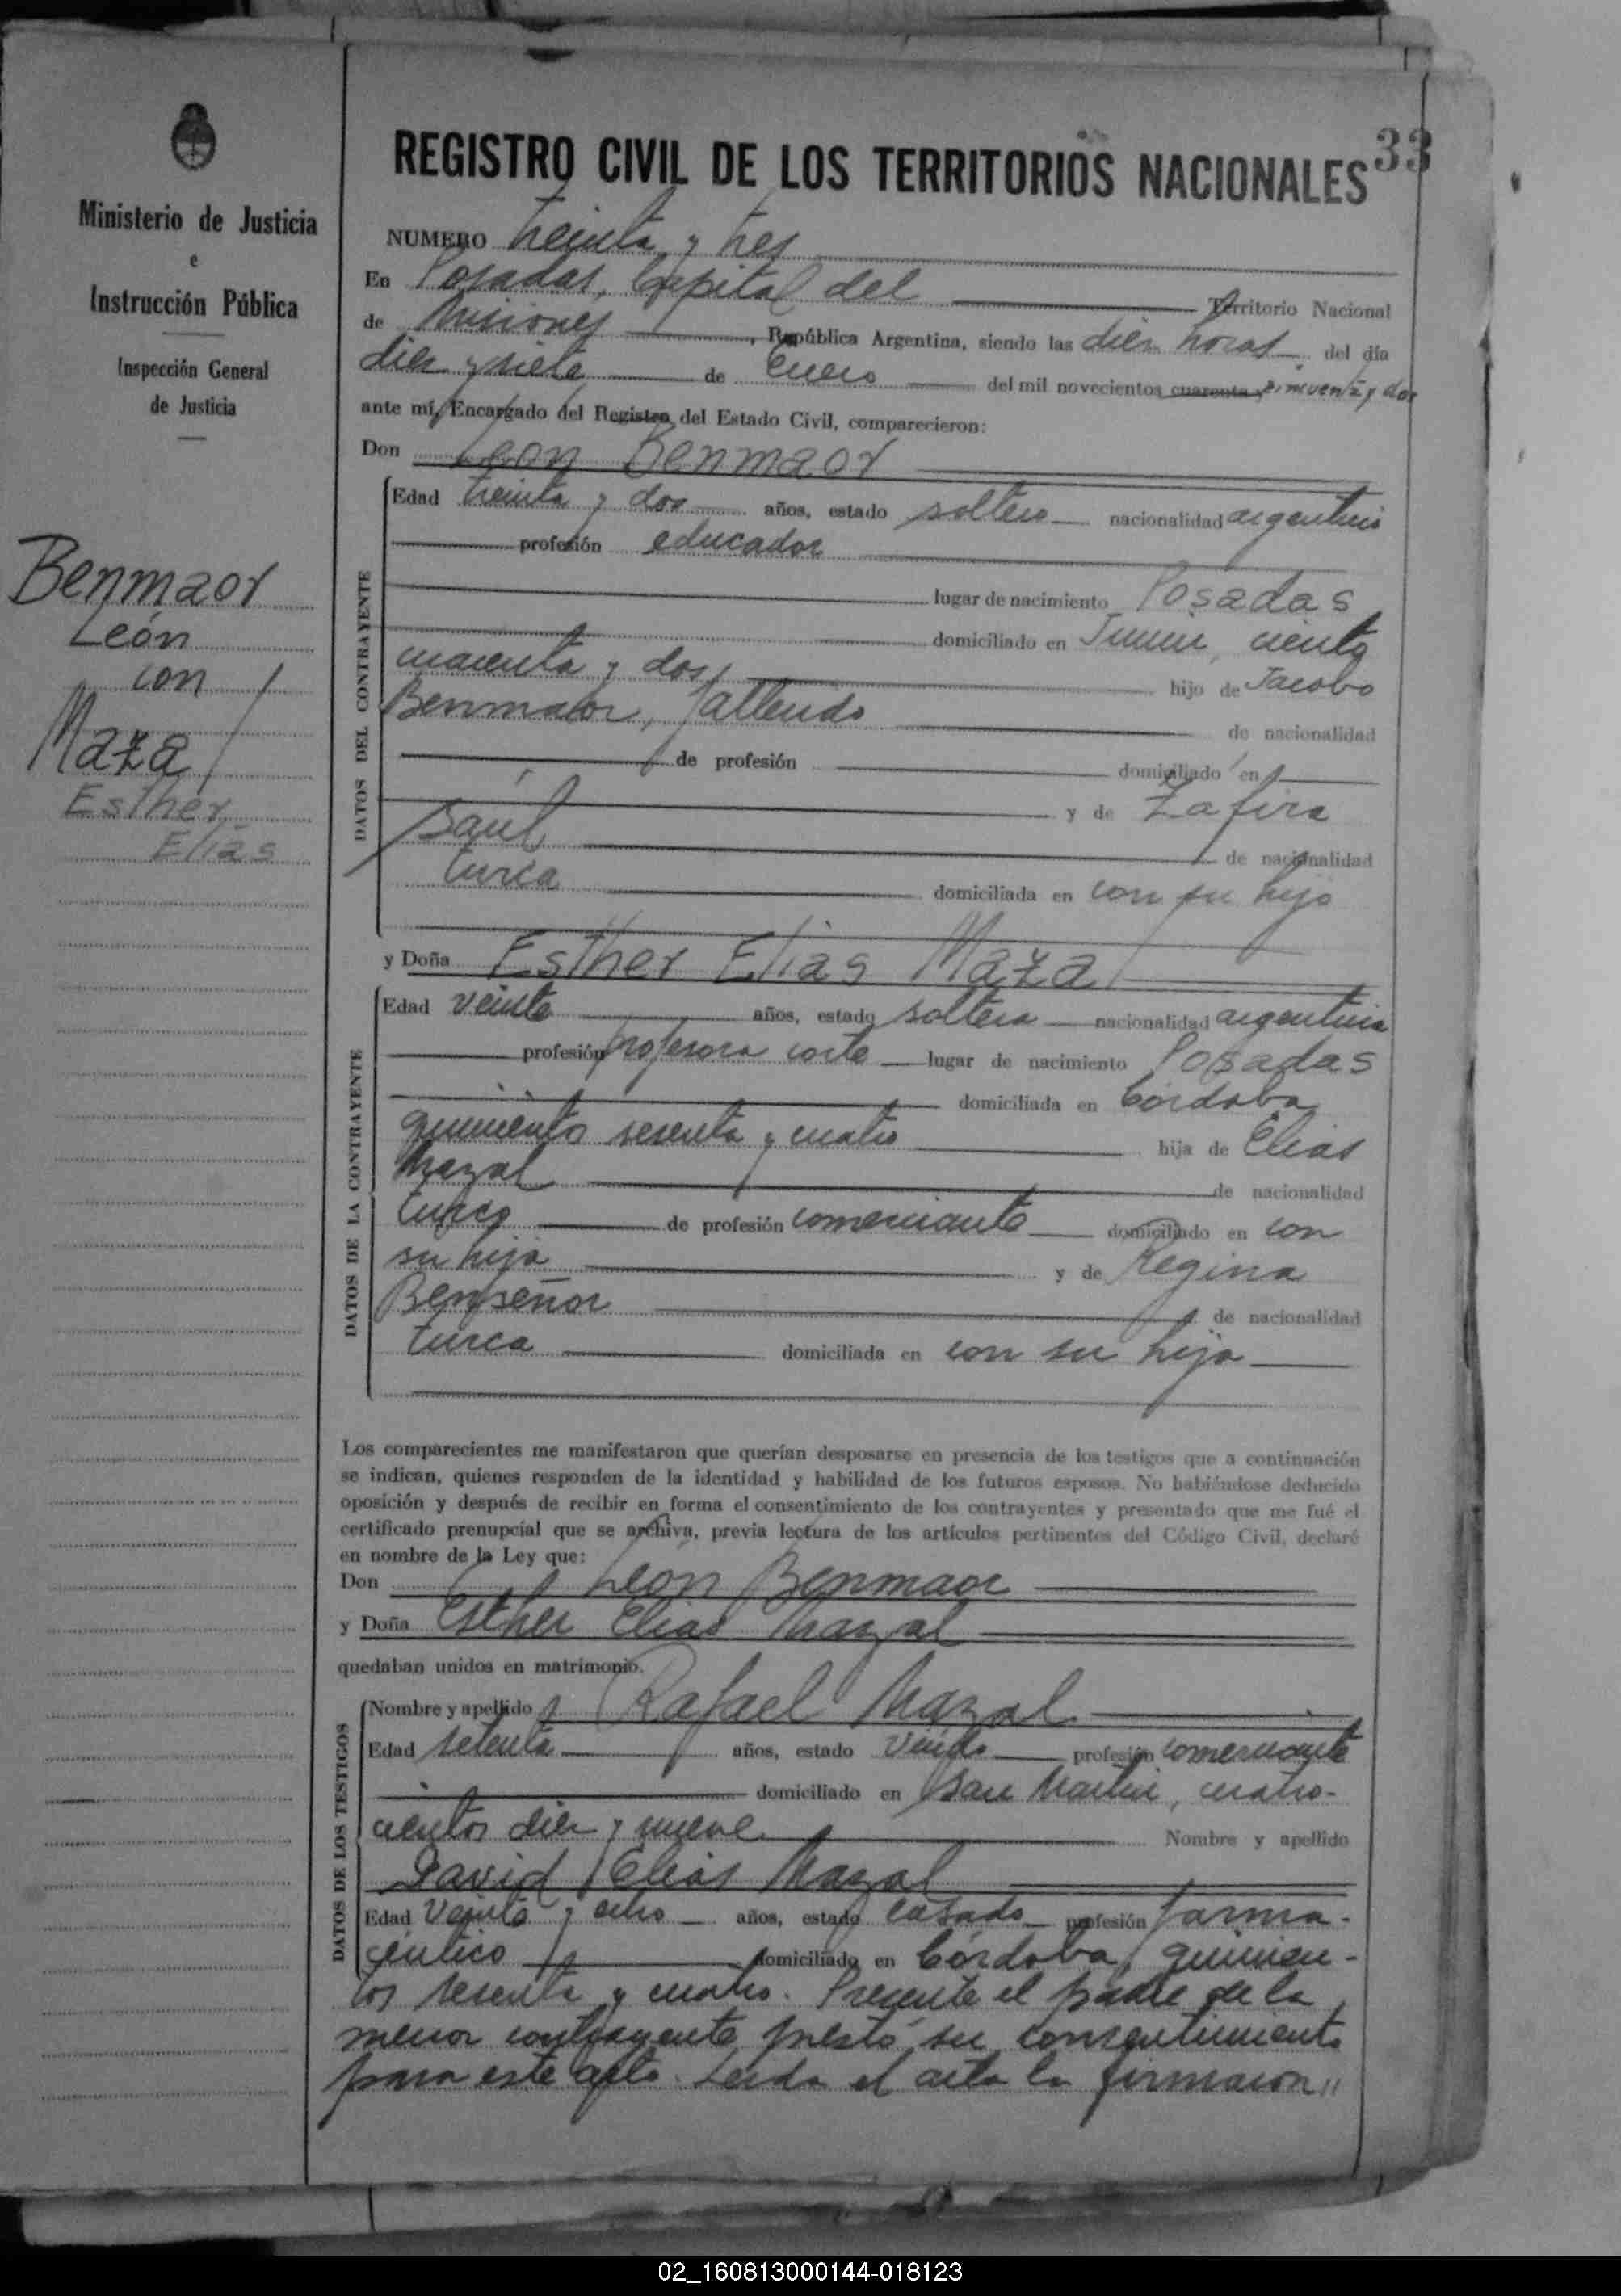 33
Ministerio de Justicia
e
Instrucción Pública
Inspección General
de Justicia
Benmaor
León
con
Maza
Esther
Elías
REGISTRO CIVIL DE LOS TERRITORIOS NACIONALES
NUMERO treinta y tres
En Posadas, Capital del Territorio Nacional
de Misiones, República Argentina, siendo las diez horas del día
diez y siete de Enero del mil novecientos cuarenta y cincuenta y dos
ante mí, Encargado del Registro del Estado Civil, comparecieron:
Don León Benmaor
DATOS DEL CONTRAYENTE
Edad treinta y dos años, estado soltero nacionalidad argentino
profesión educador
lugar de nacimiento Posadas
domiciliado en Junin, ciento
cuarenta y dos, hijo de Jacobo
Benmaor, fallecido de nacionalidad
de profesión domiciliado en
y de Zafira
Saúl de nacionalidad
turca domiciliada en con su hijo
y Doña Esther Elías Maza
DATOS DE LA CONTRAYENTE
Edad veinte años, estado soltera nacionalidad argentina
profesión profesora corte lugar de nacimiento Posadas
domiciliada en Córdoba
quinientos sesenta y cuatro hija de Elías
Mazal de nacionalidad
turco de profesión comerciante domiciliado en con
su hija y de Regina
Benseñor de nacionalidad
turca domiciliada en con su hija
Los comparecientes me manifestaron que querían desposarse en presencia de los testigos que a continuación
se indican, quienes responden de la identidad y habilidad de los futuros esposos. No habiéndose deducido
oposición y después de recibir en forma el consentimiento de los contrayentes y presentado que me fué el
certificado prenupcial que se archiva, previa lectura de los artículos pertinentes del Código Civil, declaré
en nombre de la Ley que:
Don León Benmaor
y Doña Esther Elías Mazal
quedaban unidos en matrimonio.
DATOS DE LOS TESTIGOS
Nombre y apellido Rafael Mazal
Edad setenta años, estado viudo profesión comerciante
domiciliado en San Martín, cuatro-
cientos diez y nueve Nombre y apellido
David Elías Mazal
Edad veinte y ocho años, estado casado profesión farma-
céutico domiciliado en Córdoba, quinien-
tos sesenta y cuatro. Presente el padre de la
menor contrayente prestó su consentimiento
para este acto. Leida el acta la firmaron
02_160813000144-018123